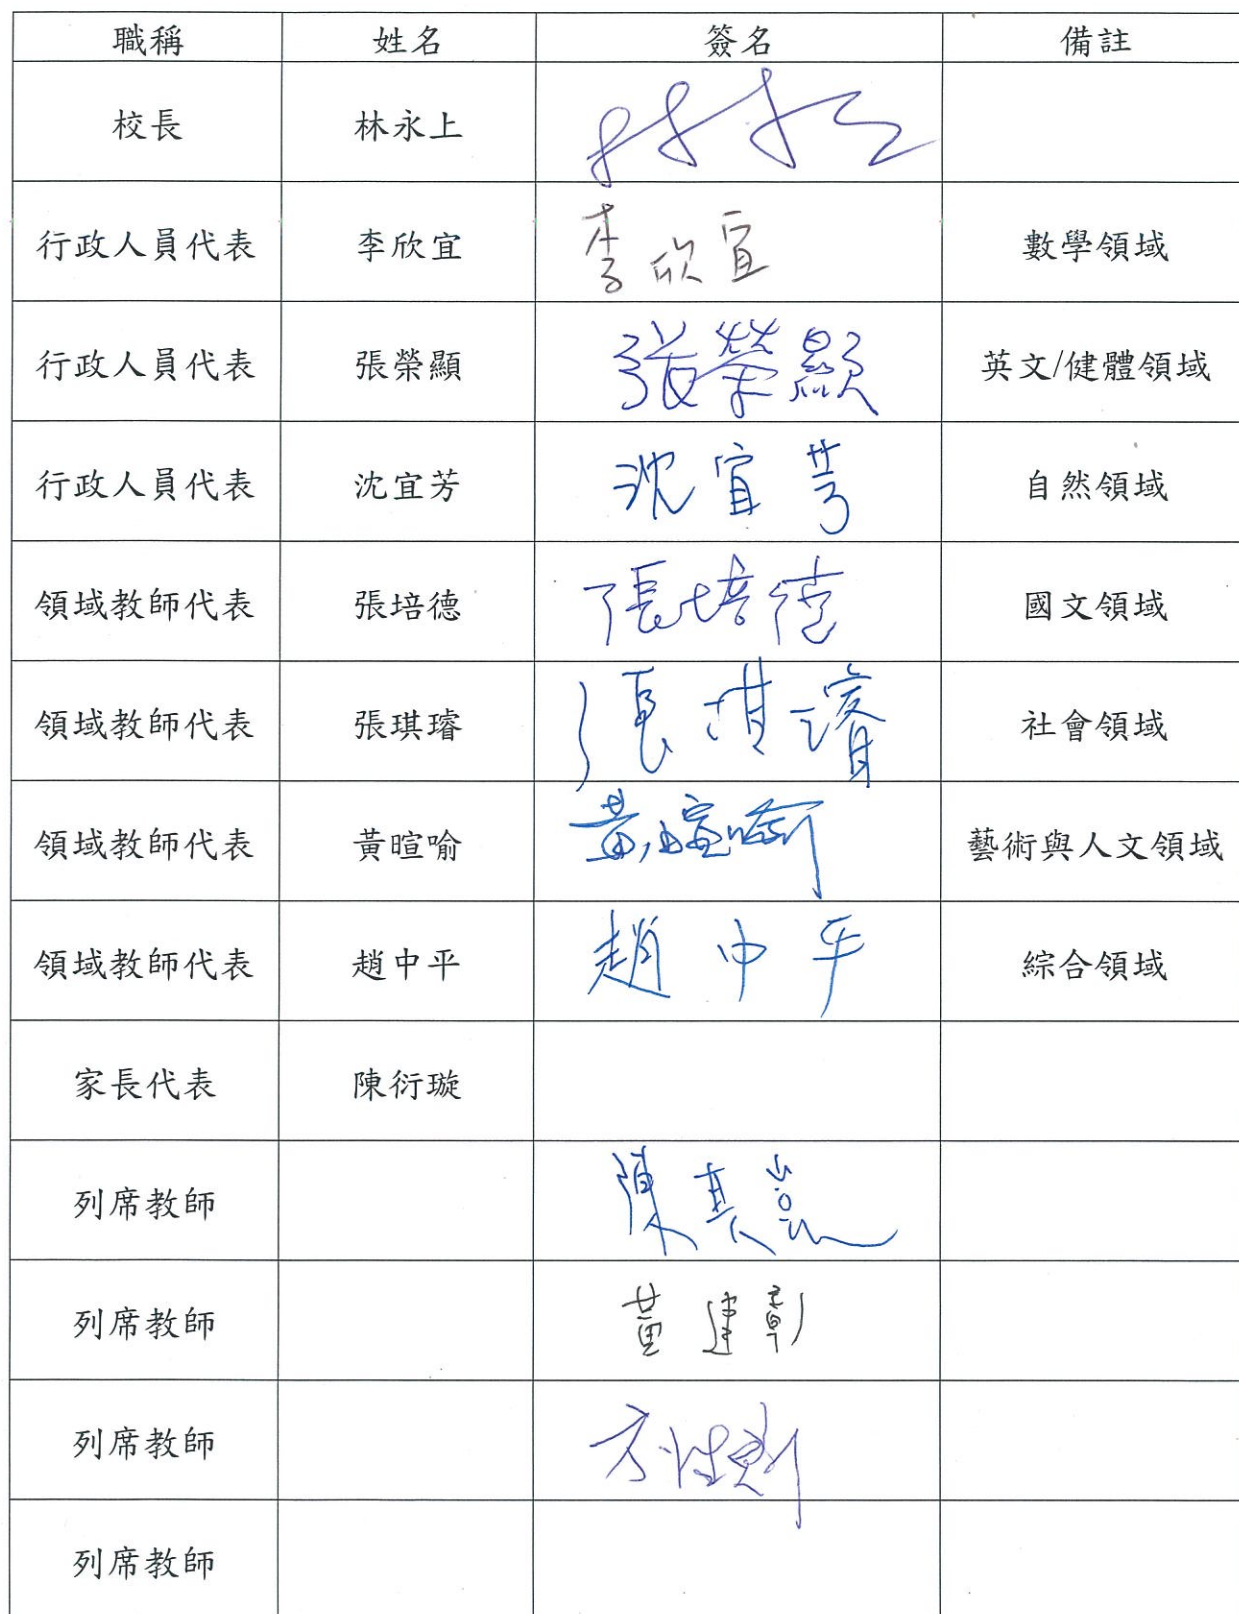 職稱 姓名 簽名 備註
校長 林永上
行政人員代表 李欣宜 李欣宜 數學領域
行政人員代表 張榮顯 張榮顯 英文/健體領域
行政人員代表 沈宜芳 沈宜芳 自然領域
領域教師代表 張培德 張培德 國文領域
領域教師代表 張琪璿 張琪璿 社會領域
領域教師代表 黃暄喻 黃暄喻 藝術與人文領域
領域教師代表 趙中平 趙中平 綜合領域
家長代表 陳衍璇
列席教師 陳其
列席教師 黃建彰
列席教師 方
列席教師